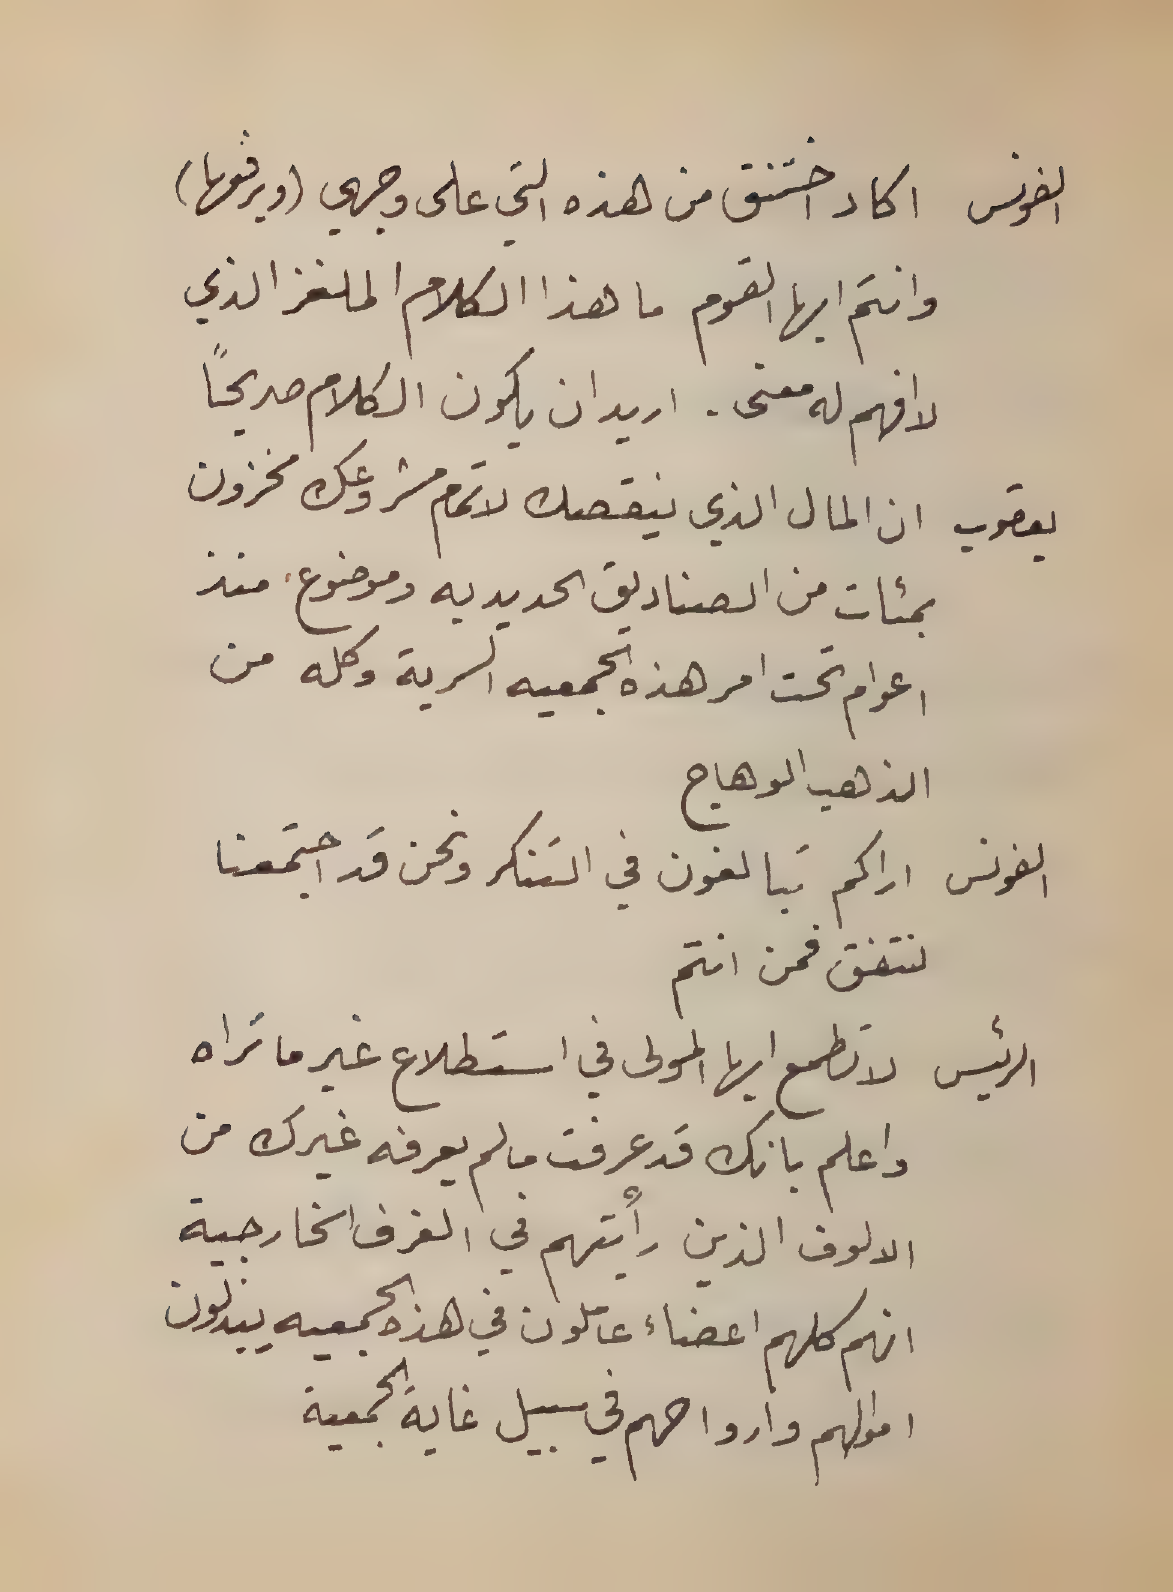 الفونس اكاد اختنق من هذه التي على وجهي (ويرفعها)
وانتم ايها القوم ما هذا الكلام الملغز الذي
لا افهم له معنى . اريد ان يكون الكلام صريحاً
يعقوب ان المال الذي ينقصك لاتمام مشروعك مخزون
بمئات من الصناديق الحديديه وموضوع منذ
اعوام تحت امر هذه الجمعيه السرية وكله من
الذهب الوهاج
الفونس اراكم تبالغون في التنكر ونحن قد اجتمعنا
لنتفق فمن انتم
الرئيس لا تطمع ايها المولى في استطلاع غير ما تراه
واعلم بانك قد عرفت ما لم يعرفه غيرك من
الالوف الذين رأيتهم في الغرف الخارجية
انهم كلهم اعضاء عاملون في هذه الجمعيه يبذلون
اموالهم وارواحهم في سبيل غاية الجمعية